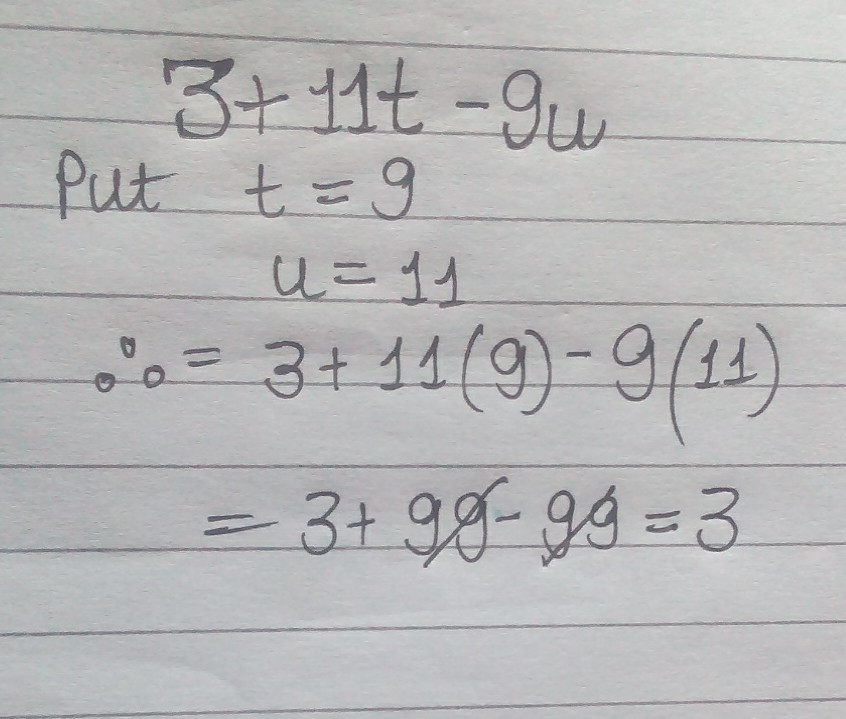 3 + 11t - 9u
Put t = 9
u = 11
∴ = 3 + 11(9) - 9(11)
= 3 + 99 - 99 = 3